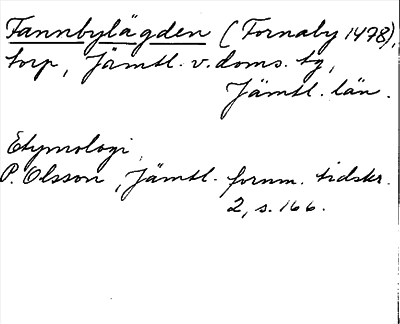 Fannbylägden (Fornaby 1478),
torp, Jämtl. v. doms. tg,
Jämtl. län.
Etymologi
P. Olsson, Jämtl. fornm. tidskr.
2, s. 166.